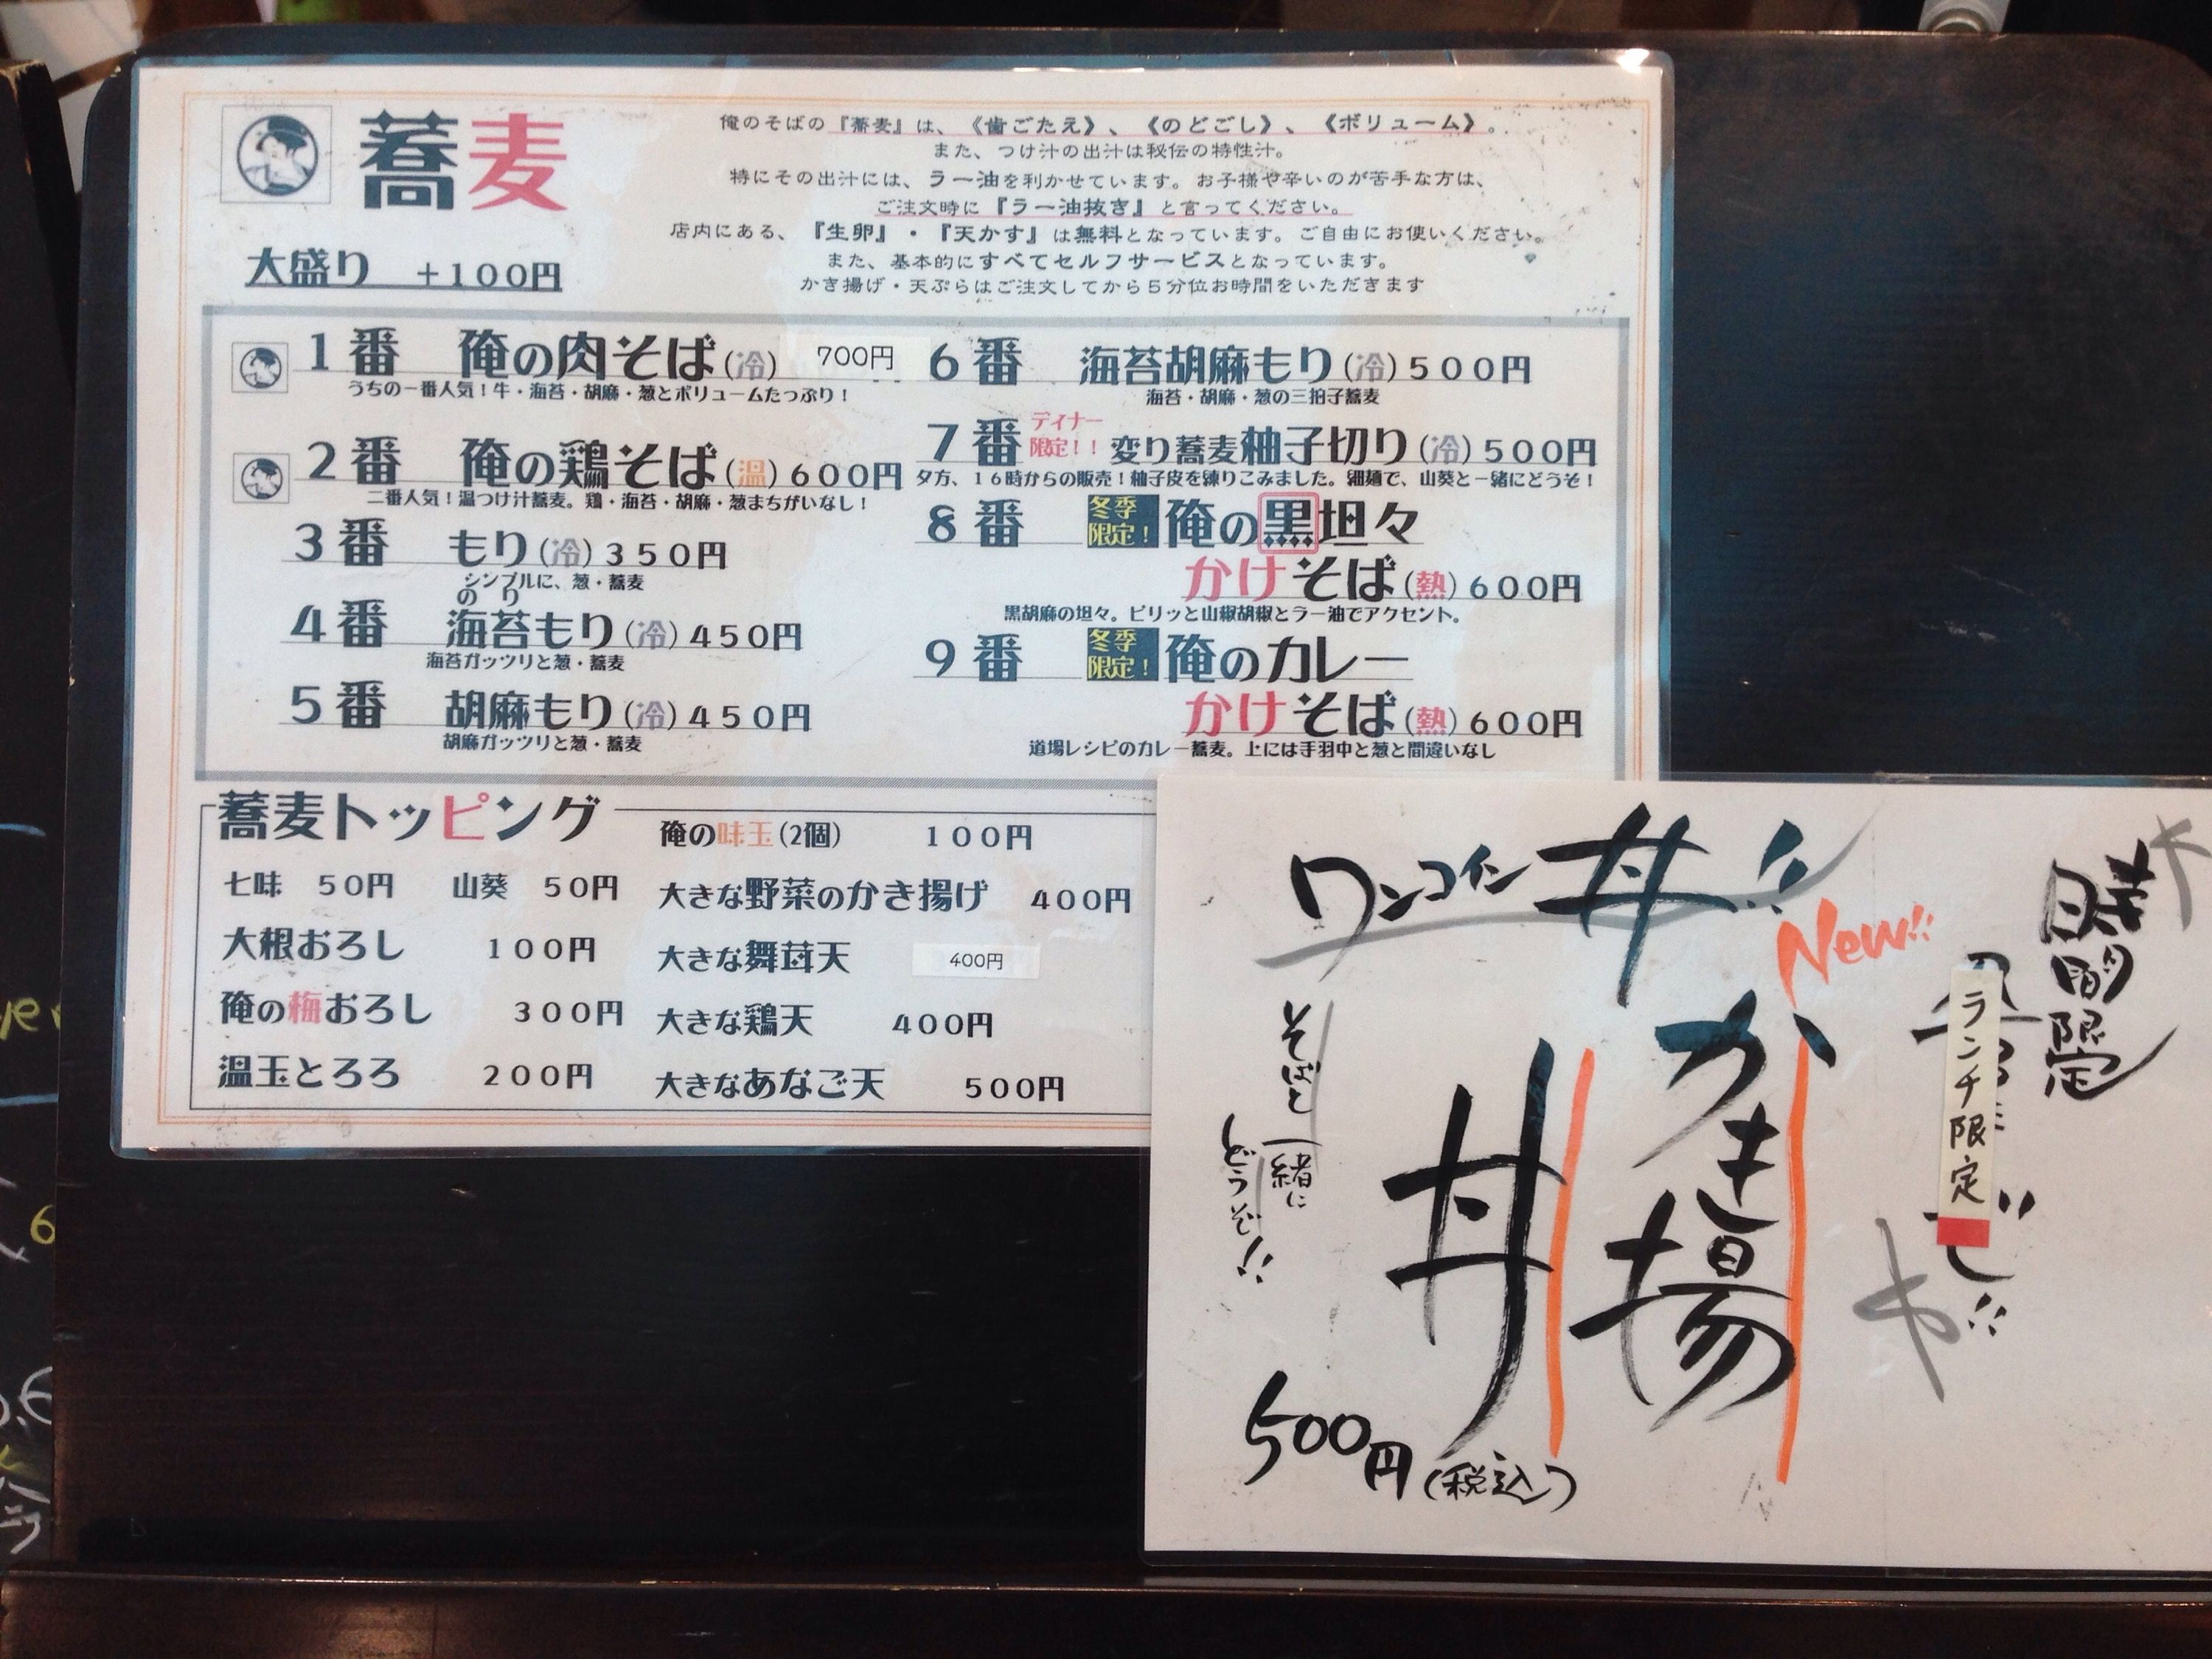 蕎麦
大盛り ＋100円
俺のそばの『蕎麦』は、《歯ごたえ》、《のどごし》、《ボリューム》。
また、つけ汁の出汁は秘伝の特性汁。
特にその出汁には、ラー油を利かせています。お子様や辛いのが苦手な方は、
ご注文時に『ラー油抜き』と言ってください。
店内にある、『生卵』・『天かす』は無料となっています。ご自由にお使いください。
また、基本的にすべてセルフサービスとなっています。
かき揚げ・天ぷらはご注文してから５分位お時間をいただきます
1番 俺の肉そば(冷) 700円
うちの一番人気！牛・海苔・胡麻・葱とボリュームたっぷり！
2番 俺の鶏そば(温)600円
二番人気！温つけ汁蕎麦。鶏・海苔・胡麻・葱まちがいなし！
3番 もり(冷)350円
シンプルに、葱・蕎麦
のり
4番 海苔もり(冷)450円
海苔ガッツリと葱・蕎麦
5番 胡麻もり(冷)450円
胡麻ガッツリと葱・蕎麦
6番 海苔胡麻もり(冷)500円
海苔・胡麻・葱の三拍子蕎麦
7番 ディナー限定！！ 変り蕎麦柚子切り(冷)500円
夕方、１６時からの販売！柚子皮を練りこみました。細麺で、山葵と一緒にどうぞ！
8番 冬季限定！ 俺の黒坦々
かけそば(熱)600円
黒胡麻の坦々。ピリッと山椒胡椒とラー油でアクセント。
9番 冬季限定！ 俺のカレー
かけそば(熱)600円
道場レシピのカレー蕎麦。上には手羽中と葱と間違いなし
蕎麦トッピング
七味 50円 山葵 50円
大根おろし 100円
俺の梅おろし 300円
温玉とろろ 200円
俺の味玉(2個) 100円
大きな野菜のかき揚げ 400円
大きな舞茸天 400円
大きな鶏天 400円
大きなあなご天 500円
ワンコイン丼!!
New!!
時間限定
ランチ限定
かき揚
丼
そばと一緒に
どうぞ!!
500円(税込)